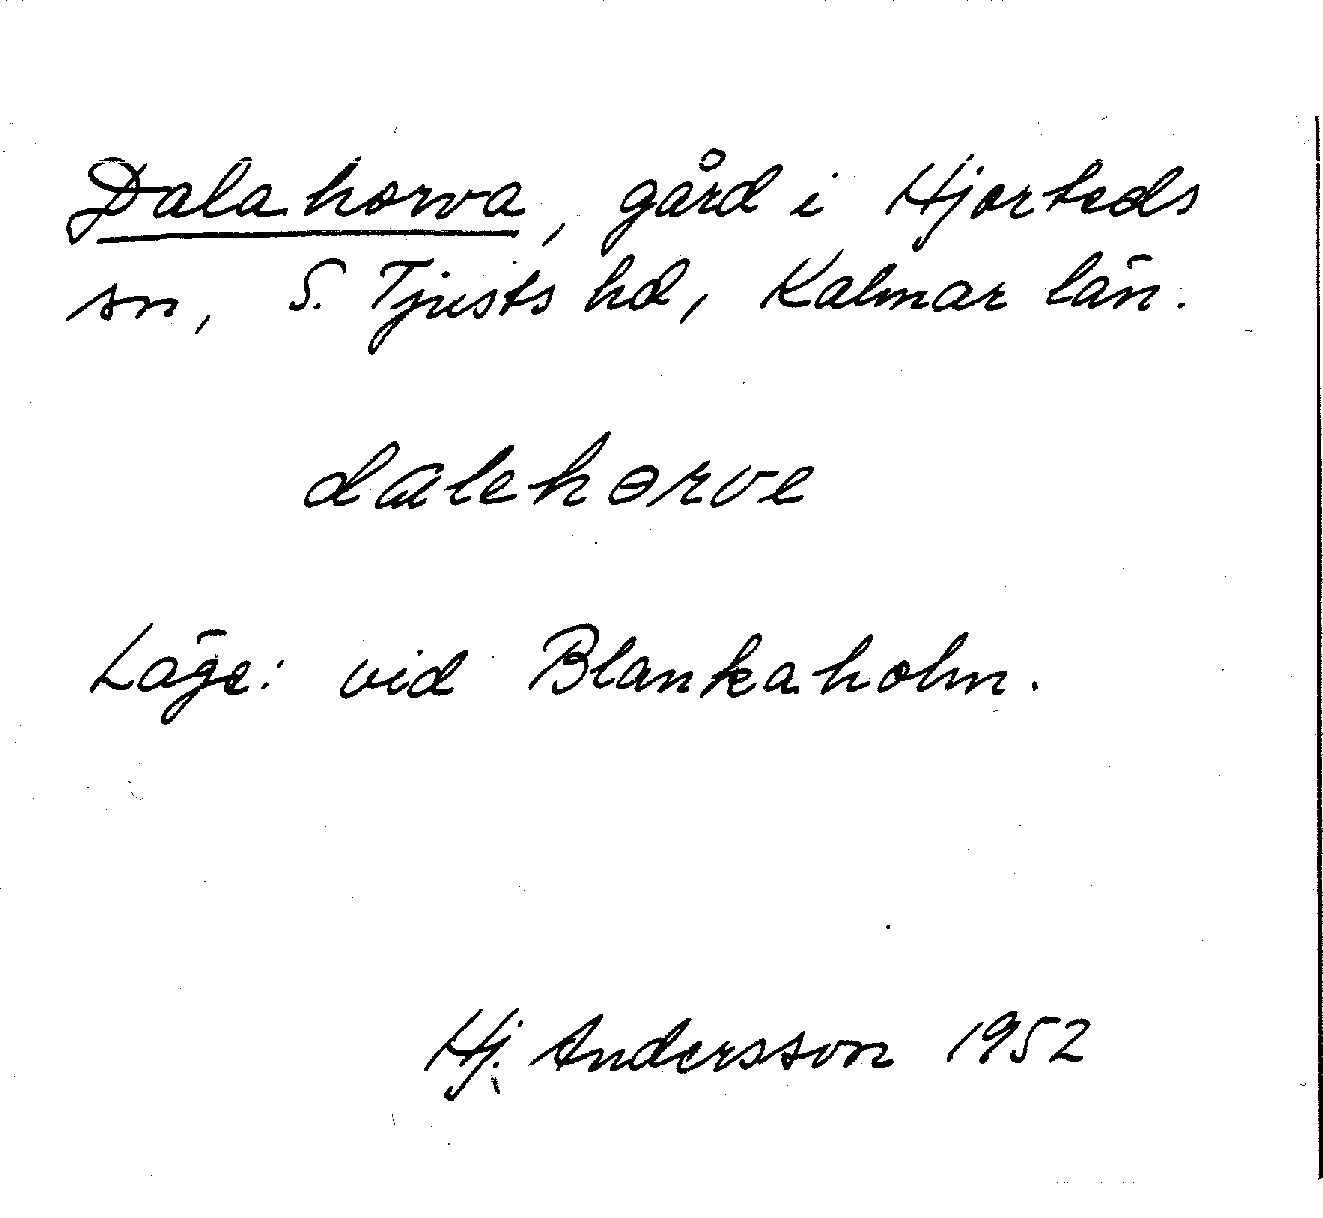 Dalahorva, gård i Hjorteds
sn, S. Tjusts hd, Kalmar län.
dɑlehɵrve
Läge: vid Blankaholm.
Hj. Andersson 1952